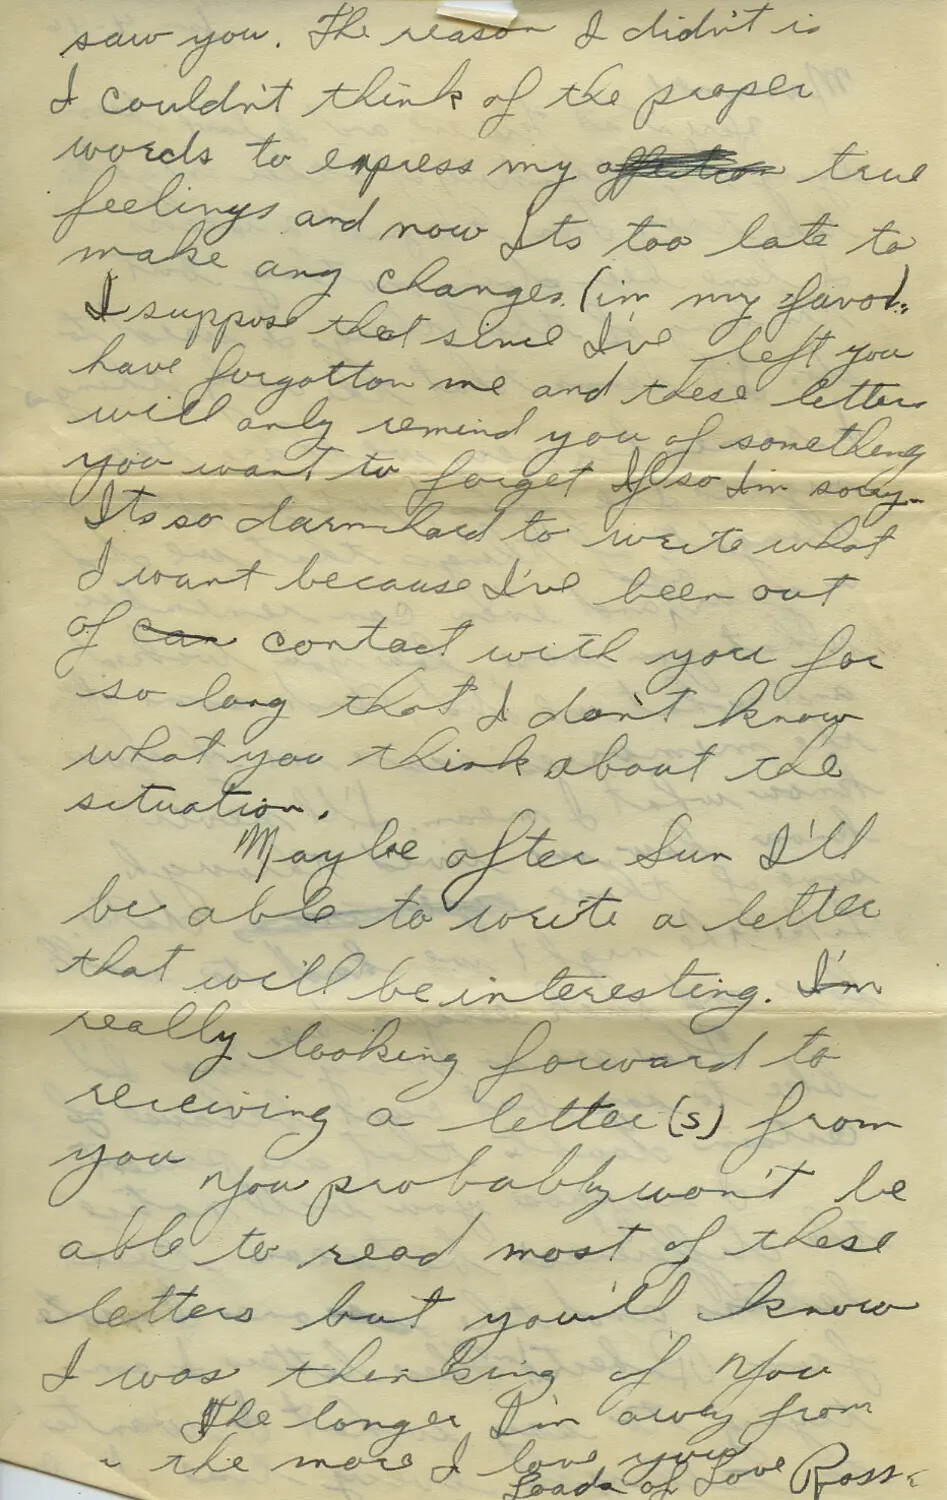 saw you. The reason I didn't is
I couldn't think of the proper
words to express my affection true
feelings and now Its too late to
make any changes. (in my favor).
I suppose that since I've left you
have forgotton me and these letters
will only remind you of something
you want to forget If so I'm sorry-
Its so darn hard to write what
I want because I've been out
of can contact with you for
so long that I don't know
what you think about the
situation.
Maybe after Sun I'll
be able to write a letter
that will be interesting. I'm
really looking forward to
receiving a letter(s) from
you
You probably won't be
able to read most of these
letters but you'll know
I was thinking of You
The longer I'm away from
the more I love you
Loads of Love Ross